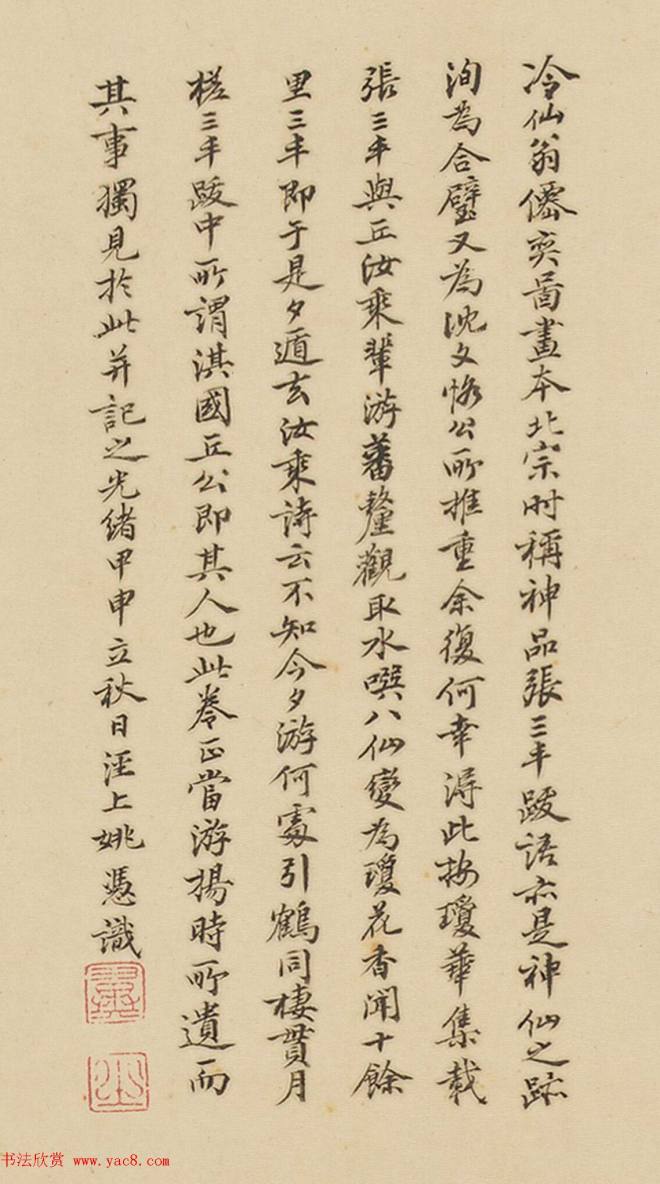 冷仙翁僊奕啚畫本北宗时稱神品張三丰跋語亦是神仙之跡
洵為合璧又為沈文恪公所推重余復何幸淂此按瓊華集載
張三丰與丘汝乘輩游蕃釐觀取水噀八仙變為瓊花香聞十餘
里三丰即于是夕遁去汝乘詩云不知今夕游何處引鶴同棲貫月
槎三丰跋中所謂淇國丘公即其人也此卷正當游揚時所遺而
其事獨見於此并記之光緒甲申立秋日涇上姚慰識
书法欣赏 www.yac8.com